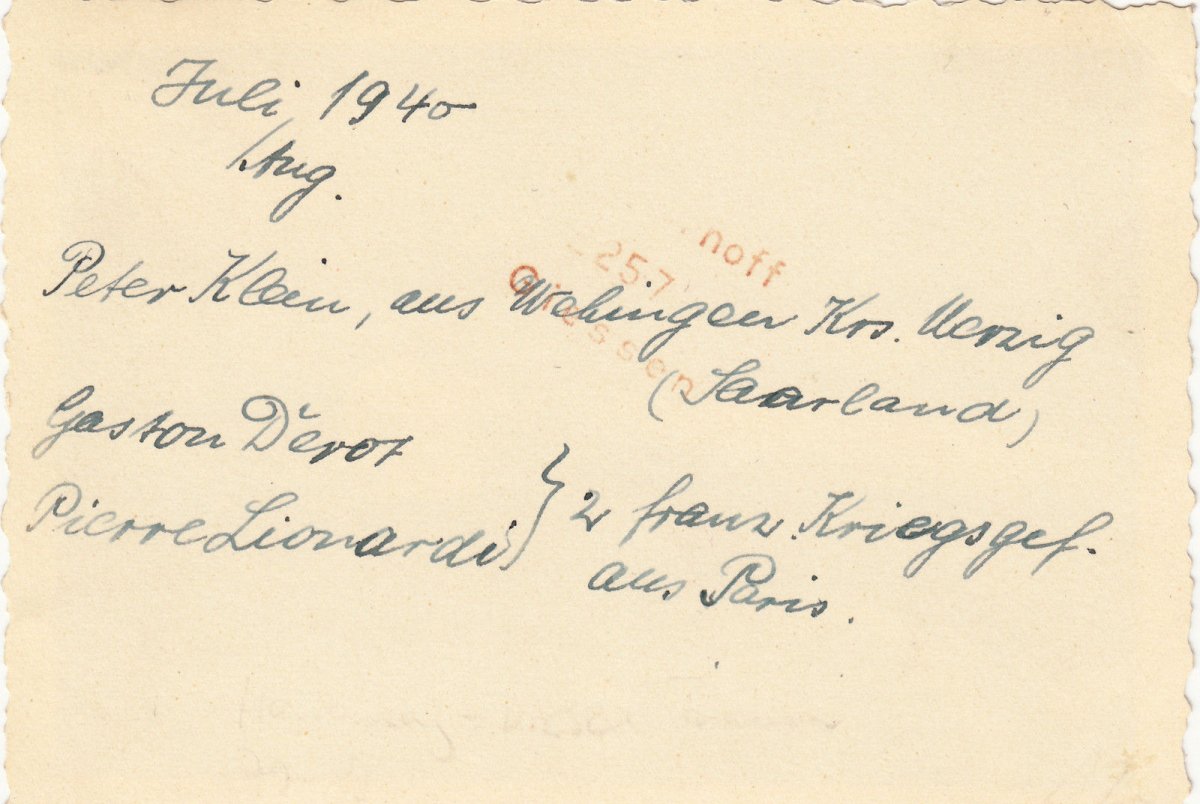 Juli 1940
/Aug.
noff
257
Giessen
Peter Klein, aus Wehingen Krs. Merzig
(Saarland)
Gaston Derot
Pierre Lionardi } 2 franz. Kriegsgef.
aus Paris.